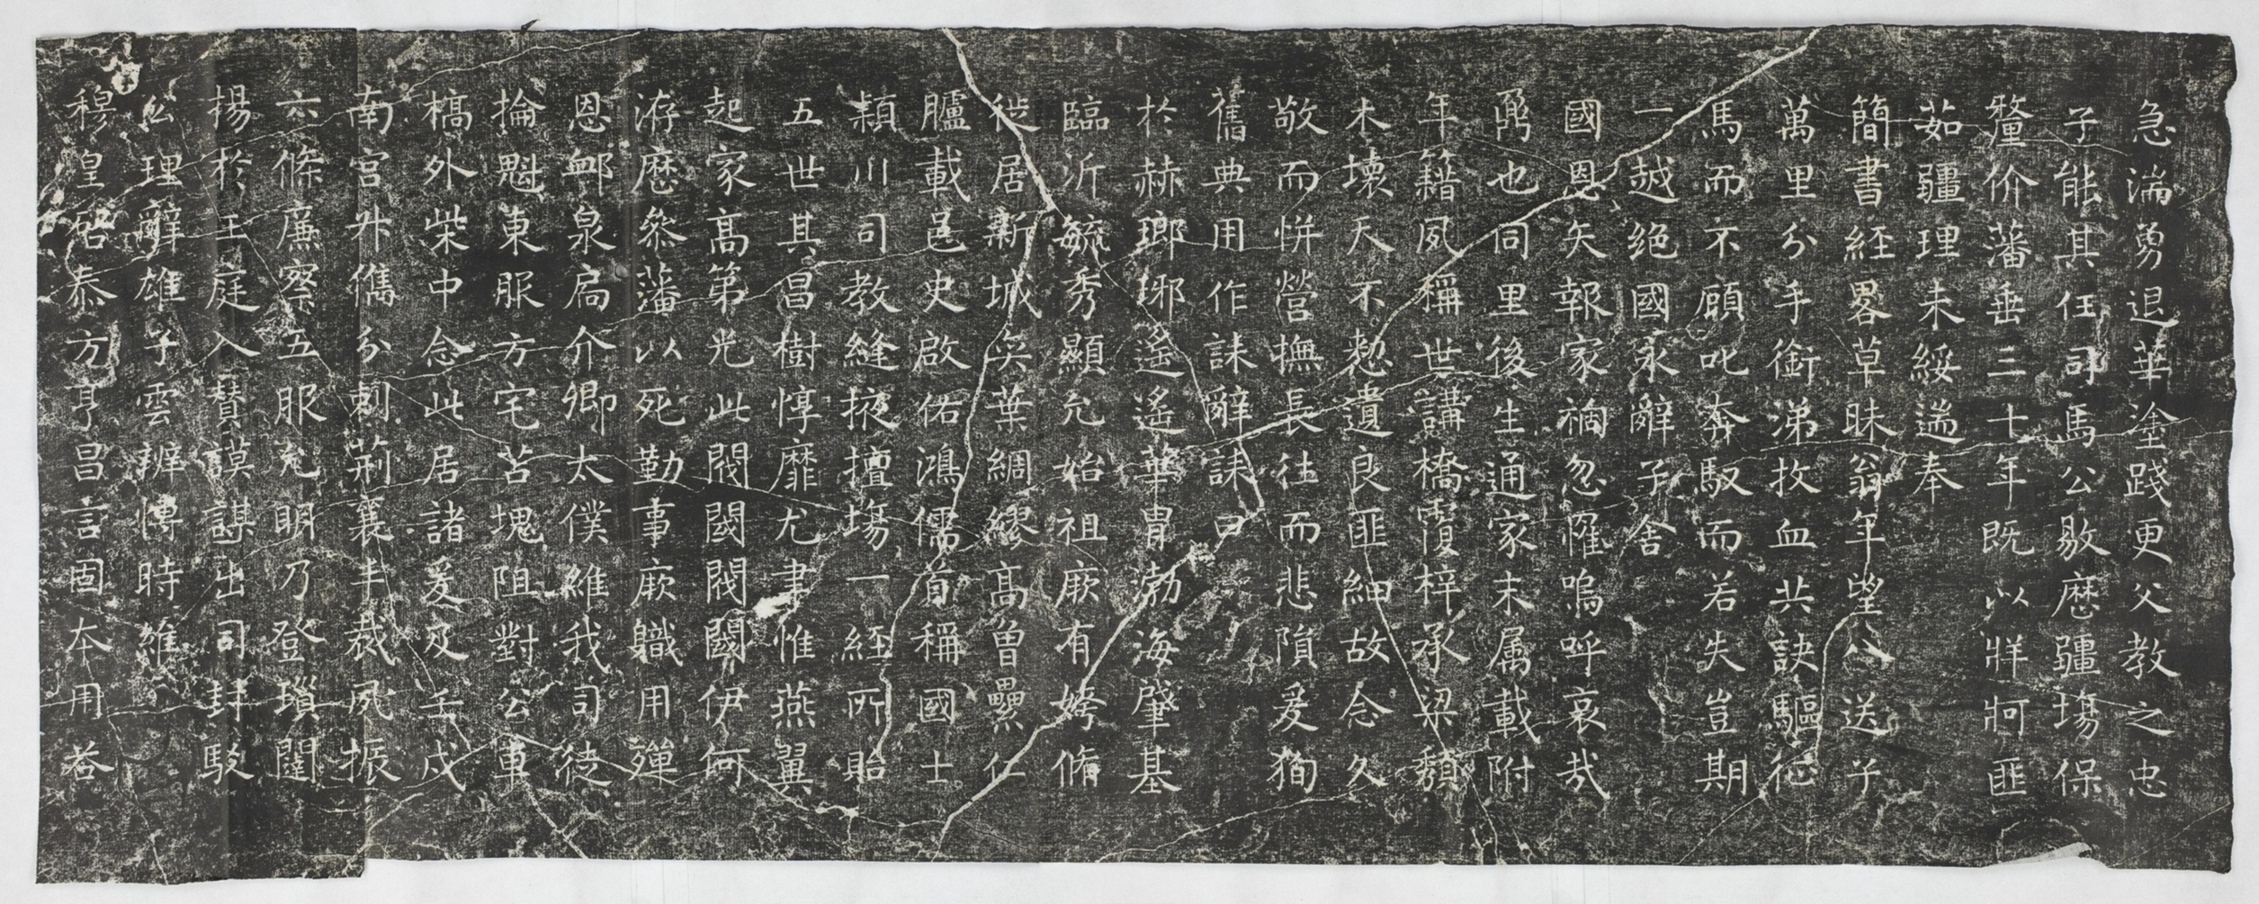 急湍勇退華塗踐更父教之忠
子能其任司馬公敭歷疆埸保
釐价藩垂三十年既以牂牁匪
茹疆理未綏遄奉
簡書経畧草昧翁年望八送子
萬里分手銜涕抆血共訣驅征
馬而不顧叱奔馭而若失豈期
一越絕國永辭子舍
國恩矢報家禍忽罹嗚呼哀哉
也同里後生通家末属載附
年籍夙稱世講橋霣梓承梁頹
木壞天不憖遺良匪細故念久
敬而恲營撫長往而悲隕爰徇
舊典用作誄辭誄曰
於赫瑯琊遙遙華胄渤海肇基
臨沂毓秀顯允始祖厥有姱脩
徙居新城奕葉綢繆高曾纍仁
臚載邑史啟佑鴻儒蔚稱國士
穎川司教縫掖擅塲一経所貽
五世其昌樹惇靡尤聿惟燕翼
起家高第光此閥閱閥閱伊何
洊歷叅藩以死勤事厥職用殫
恩卹泉扃介卿太僕維我司徒
掄魁東服方宅苫塊阻對公車
槁外柴中念此居諸爰及壬戌
南宮升儁分剚荊襄丰裁夙振
六條廉察五服允明乃登瑣闥
揚於王庭入贊謨謀出司封駁
公理辭雄子雲辨博時維
穆皇啟泰方亨昌言固本用荅